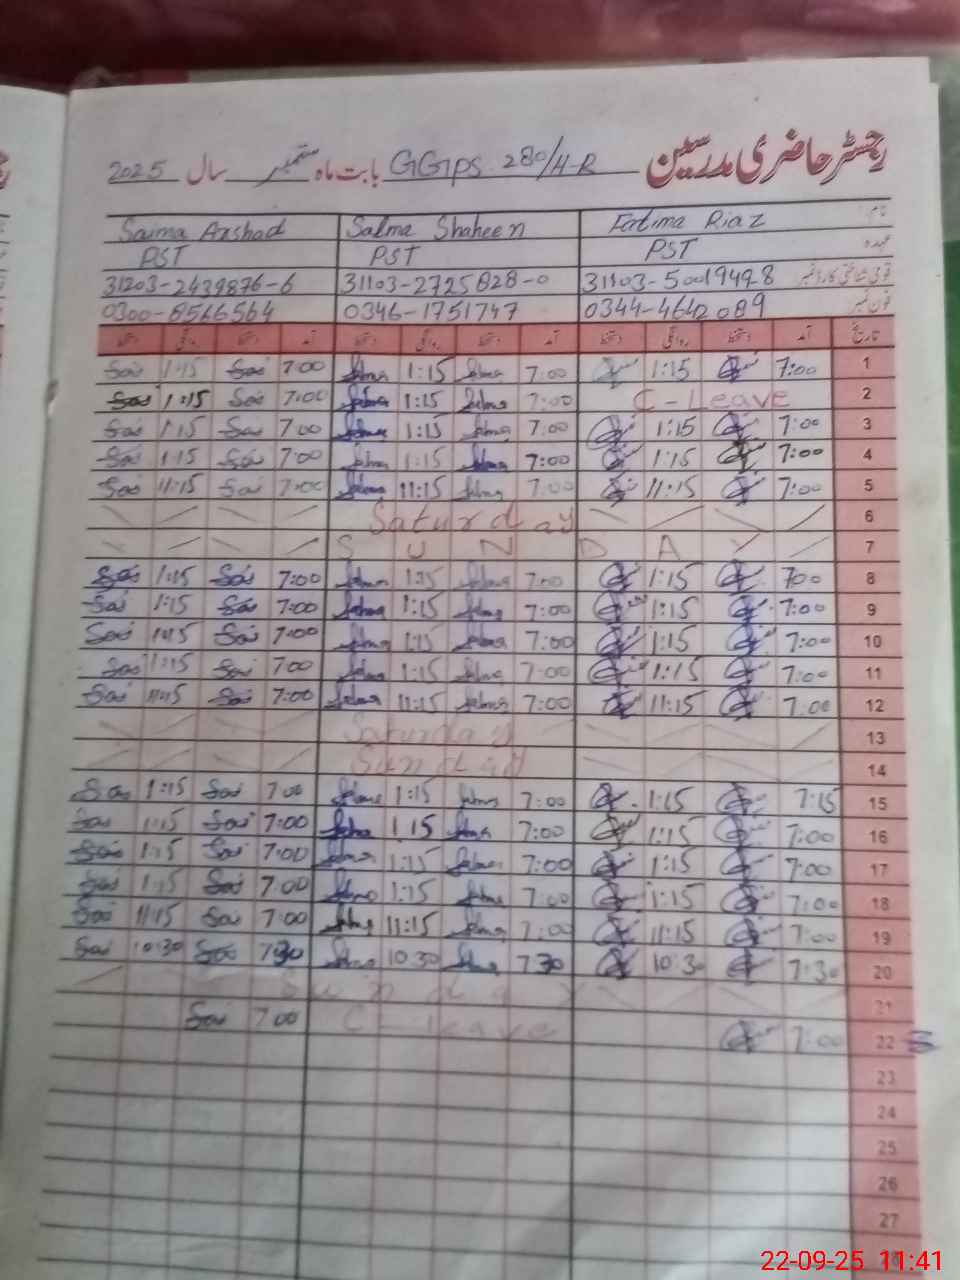 رجسٹر حاضری مدرسین GGPS 280/H-R بابت ماہ ستمبر سال 2025
Saima Arshad Salma Shaheen Fatima Riaz نام
PST PST PST عہدہ
31203-2439876-6 31103-2725828-0 31103-5001949-8
0300-8566564 0346-1751747 0344-4642089 فون نمبر
دستخط روانگی دستخط آمد دستخط روانگی دستخط آمد دستخط روانگی دستخط آمد تاریخ
Sai 1:15 Sai 7:00 Salma 1:15 Salma 7:00 1:15 7:00 1
Sai 1:15 Sai 7:00 Salma 1:15 Salma 7:00 C-Leave 2
Sai 1:15 Sai 7:00 Salma 1:15 Salma 7:00 1:15 7:00 3
Sai 1:15 Sai 7:00 Salma 1:15 Salma 7:00 1:15 7:00 4
Sai 11:15 Sai 7:00 Salma 11:15 Salma 7:00 11:15 7:00 5
Saturday 6
SUNDAY 7
Sai 1:15 Sai 7:00 Salma 1:15 Salma 7:00 1:15 7:00 8
Sai 1:15 Sai 7:00 Salma 1:15 Salma 7:00 1:15 7:00 9
Sai 1:15 Sai 7:00 Salma 1:15 Salma 7:00 1:15 7:00 10
Sai 1:15 Sai 7:00 Salma 1:15 Salma 7:00 1:15 7:00 11
Sai 11:15 Sai 7:00 Salma 11:15 Salma 7:00 11:15 7:00 12
Saturday 13
Sunday 14
Sai 1:15 Sai 7:00 Salma 1:15 Salma 7:00 1:15 7:15 15
Sai 1:15 Sai 7:00 Salma 1:15 Salma 7:00 1:15 7:00 16
Sai 1:15 Sai 7:00 Salma 1:15 Salma 7:00 1:15 7:00 17
Sai 1:15 Sai 7:00 Salma 1:15 Salma 7:00 1:15 7:00 18
Sai 11:15 Sai 7:00 Salma 11:15 Salma 7:00 11:15 7:00 19
Sai 10:30 Sai 7:30 Salma 10:30 Salma 7:30 10:30 7:30 20
Sunday 21
Sai 7:00 C-leave 7:00 22
23
24
25
26
27
22-09-25 11:41